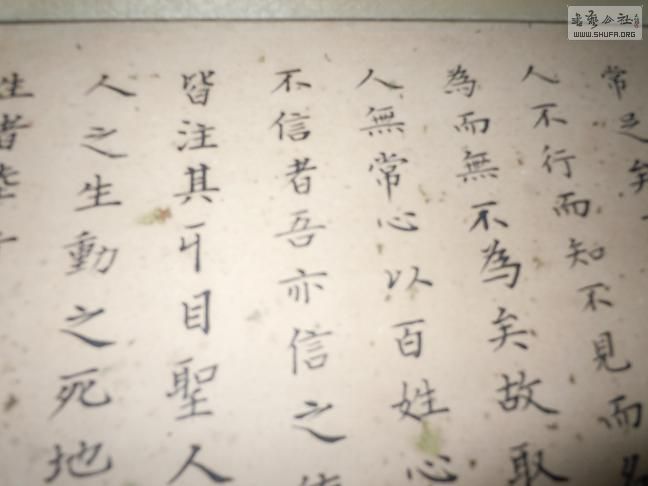 常足矣
人不行而知不見而
為而無不為矣故取
人無常心以百姓心
不信者吾亦信之
皆注其耳目聖人
人之生動之死地
生者
書藝公社
WWW.SHUFA.ORG